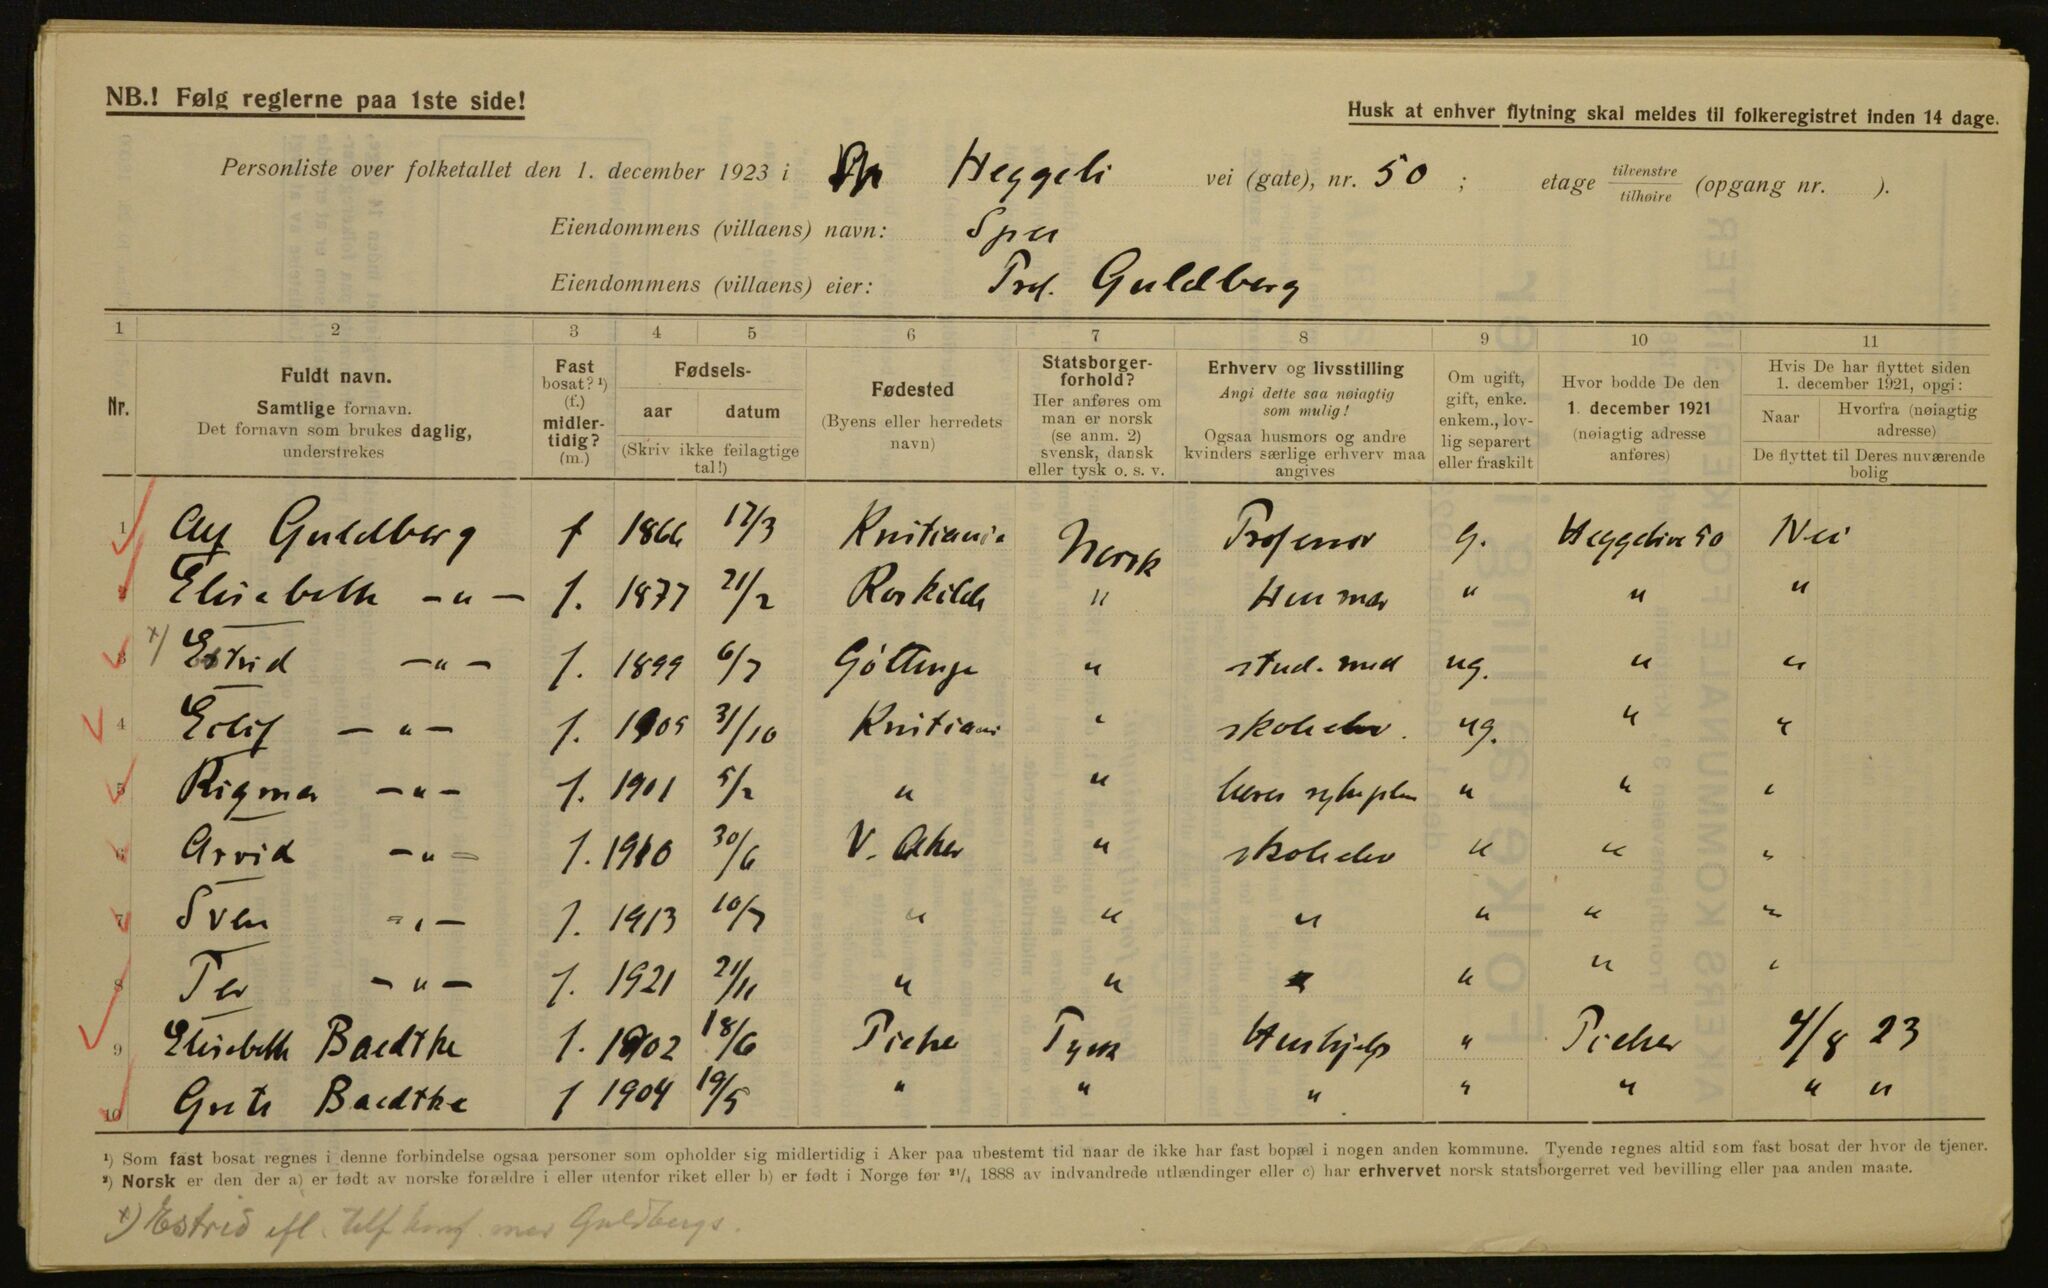 NB.! Følg reglerne paa 1ste side!
Husk at enhver flytning skal meldes til folkeregistret inden 14 dage.
Personliste over folketallet den 1. december 1923 i Heggeli vei (gate), nr. 50 ; etage tilvenstre / tilhøire (opgang nr. ).
Eiendommens (villaens) navn: Spes
Eiendommens (villaens) eier: Prof. Guldberg
1 2 3 4 5 6 7 8 9 10 11
Nr.
Fuldt navn.
Samtlige fornavn.
Det fornavn som brukes daglig,
understrekes
Fast
bosat? ¹)
(f.)
midler-
tidig?
(m.)
Fødsels-
aar datum
(Skriv ikke feilagtige
tal!)
Fødested
(Byens eller herredets
navn)
Statsborger-
forhold?
Her anføres om
man er norsk
(se anm. 2)
svensk, dansk
eller tysk o. s. v.
Erhverv og livsstilling
Angi dette saa nøiagtig
som mulig!
Ogsaa husmors og andre
kvinders særlige erhverv maa
angives
Om ugift,
gift, enke.
enkem., lov-
lig separert
eller fraskilt
Hvor bodde De den
1. december 1921
(nøiagtig adresse
anføres)
Hvis De har flyttet siden
1. december 1921, opgi:
Naar Hvorfra (nøiagtig
adresse)
De flyttet til Deres nuværende
bolig
1 Alf Guldberg f 1866 17/3 Kristiania Norsk Professor g. Heggelive 50 Nei
2 Elisabeth — " — f. 1877 21/2 Roskilde " Husmor " " "
x) 3 Estrid — " — f. 1899 6/7 Göttinge " stud. med ug. " "
4 Eilif — " — f. 1905 31/10 Kristiani " skoleelev. ug. " "
5 Rigmor — " — f. 1901 5/2 " " lærer sykeplei " " "
6 Arvid — " — f. 1910 30/6 V. Aker " skoleelev " " "
7 Sven — " — f. 1913 10/7 " " " " " "
8 Per — " — f. 1921 21/11 " " " " " "
9 Elisabeth Baedtke f. 1902 18/6 Pieher Tysk Hushjelp " Pieher 4/8 23
10 Grete Baedtke f 1904 19/5 " " " " " " "
¹) Som fast bosat regnes i denne forbindelse ogsaa personer som opholder sig midlertidig i Aker paa ubestemt tid naar de ikke har fast bopæl i nogen anden kommune. Tyende regnes altid som fast bosat der hvor de tjener.
²) Norsk er den der a) er født av norske forældre i eller utenfor riket eller b) er født i Norge før 21/4 1888 av indvandrede utlændinger eller c) har erhvervet norsk statsborgerret ved bevilling eller paa anden maate.
x) Estrid efl. telf. konf. med Guldbergs.